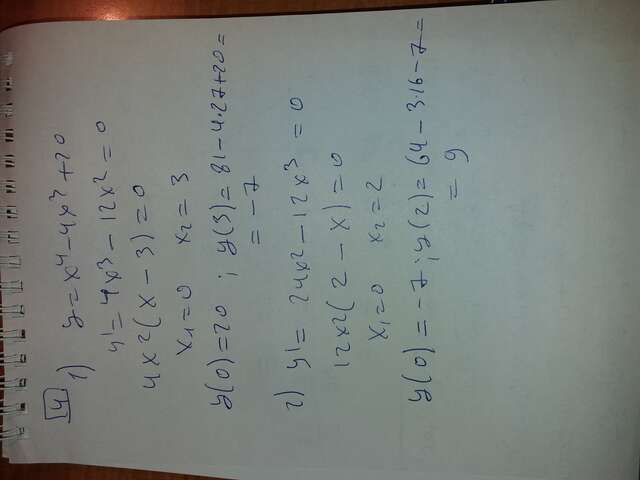 4
1) y = x⁴ - 4x³ + 20
y' = 4x³ - 12x² = 0
4x²(x - 3) = 0
x₁ = 0 x₂ = 3
y(0) = 20 ; y(3) = 81 - 4·27 + 20 =
= -7
2) y' = 24x² - 12x³ = 0
12x²(2 - x) = 0
x₁ = 0 x₂ = 2
y(0) = -7 ; y(2) = 64 - 3·16 - 7 =
= 9